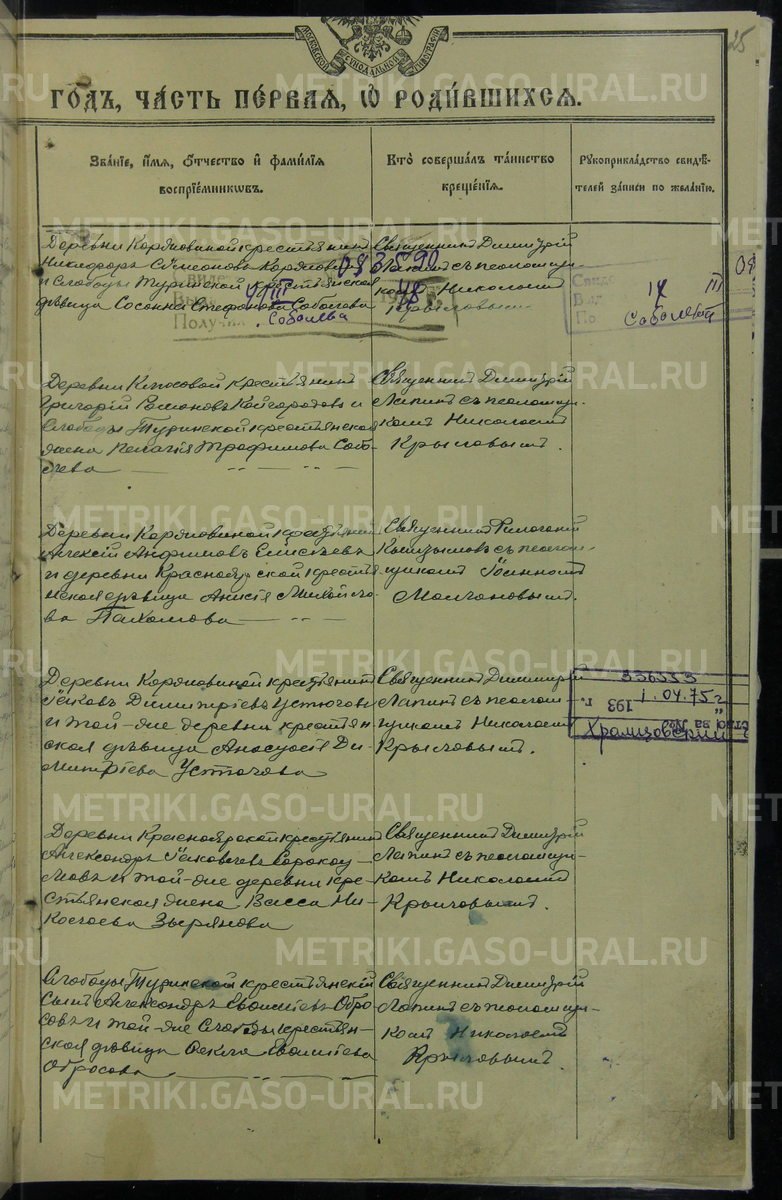 25
МОСКОВСКОЙ СѴНОДАЛЬНОЙ ТИПОГРАФІИ
ГОДЪ, ЧАСТЬ ПЕРВАЯ, Ѡ РОДИВШИХСЯ.
Званіе, имя, отчество и фамилія
воспріемниковъ.
Кто совершалъ таинство
крещенія.
Рукоприкладство свидѣ-
телей записи по желанію.
Деревни Коряковиной крестьянинъ
Никифоръ Сѵмеоновъ
и Слободы Туринской крестьянская
дѣвица Стефанова Соболева
Священникъ Димитрій
Лапинъ съ псаломщи-
комъ Николаемъ
Крыловымъ
083590
III
Соболева
III
Соболевой
08
Деревни крестьянинъ
Григорій Романовъ Кайгородовъ и
Слободы Туринской крестьянская
жена Пелагія Трофимова Собо-
лева
Священникъ Димитрій
Лапинъ съ псаломщи-
комъ Николаемъ
Крыловымъ.
Деревни Коряковиной крестьянинъ
Алексій Анфимовъ Елисѣевъ
и деревни Красноярской кресть-
янская дѣвица Анисія Михайло-
ва Пахомова
Священникъ
съ псалом-
щикомъ Іоанномъ
Молчановымъ.
Деревни Коряковиной крестьянинъ
Іаковъ Димитріевъ Устюговъ
и той-же деревни крестьян-
ская дѣвица Анастасія Ди-
митріева Устюгова
Священникъ Димитрій
Лапинъ съ псалом-
щикомъ Николаемъ
Крыловымъ.
336553
193 г.
1.04.75 г
Храмцовский
Деревни Красноярской крестьянинъ
Александръ Іаковлевъ Сороко-
и той-же деревни кре-
стьянская жена Васса Ни-
колаева Зырянова
Священникъ Димитрій
Лапинъ съ псаломщи-
комъ Николаемъ
Крыловымъ.
Слободы Туринской крестьянскій
сынъ Александръ Обро-
совъ и той-же Слободы крестьян-
ская дѣвица
Обросова
Священникъ Димитрій
Лапинъ съ псаломщи-
комъ Николаемъ
Крыловымъ.
METRIKI.GASO-URAL.RU